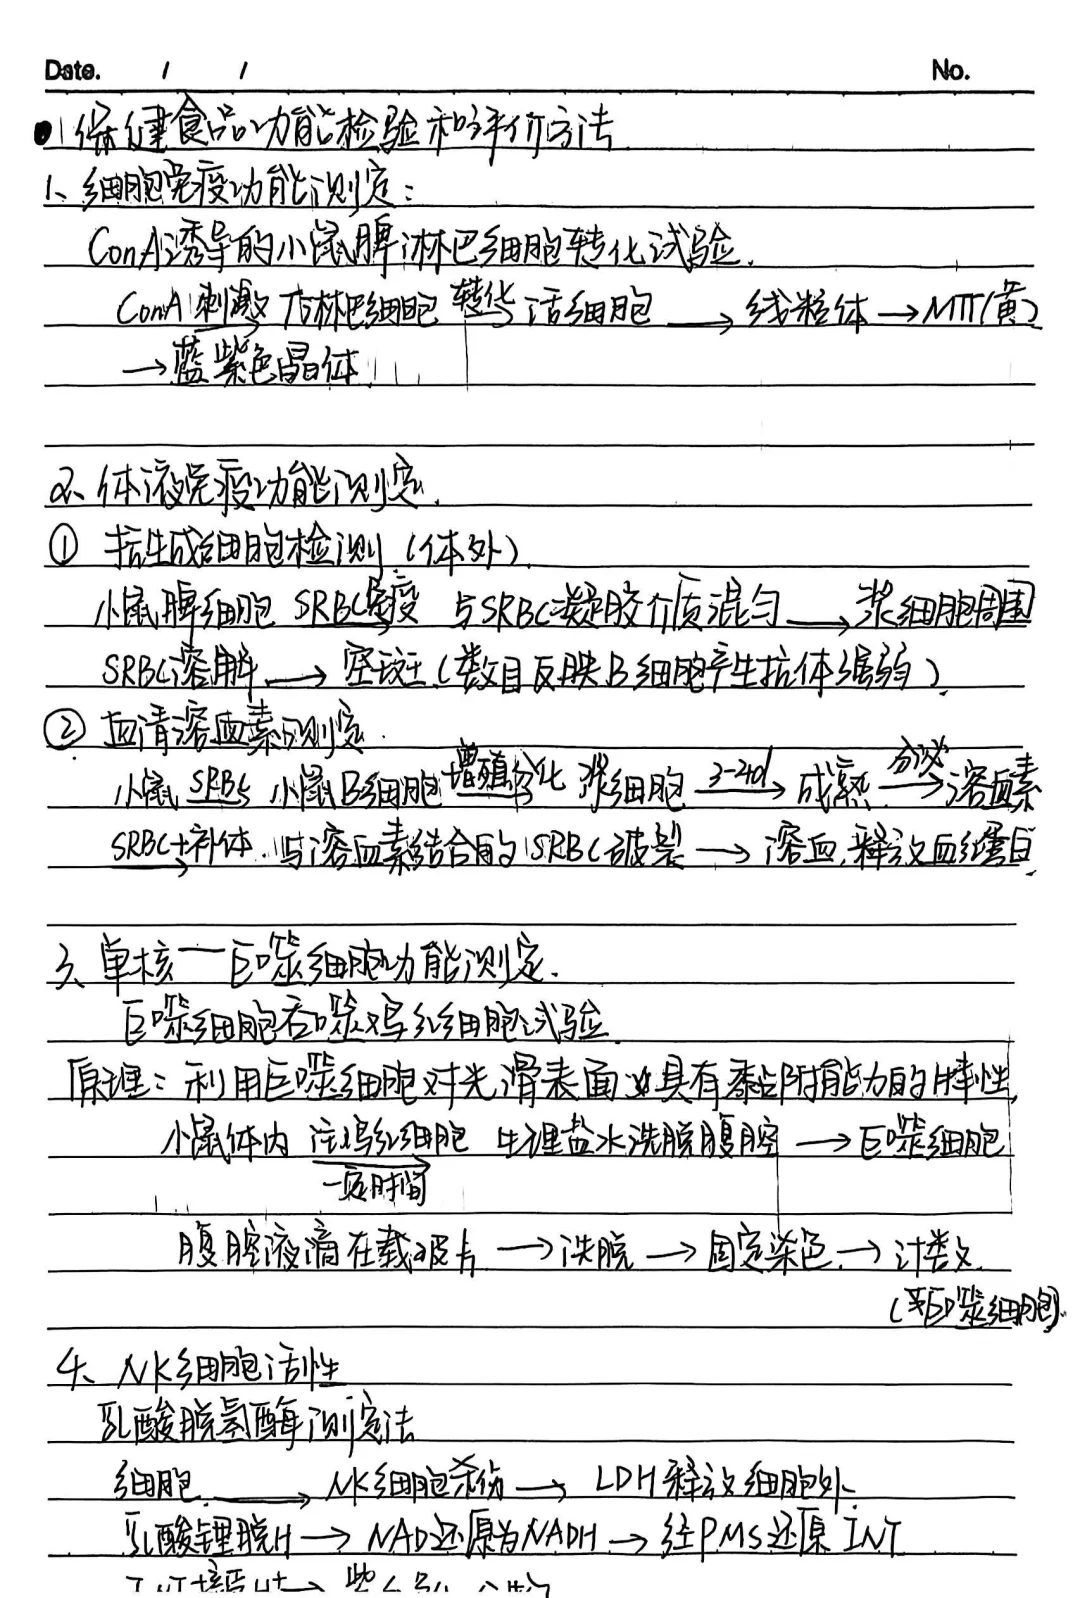 Date. / / No.
1 保健食品功能检验和评价方法
1、细胞免疫功能测定:
ConA诱导的小鼠脾淋巴细胞转化试验.
ConA 刺激 淋巴细胞 转化 活细胞 → 线粒体 → MTT(黄)
→ 蓝紫色晶体
2、体液免疫功能测定.
① 抗生成细胞检测(体外)
小鼠脾细胞 SRBC免疫 与SRBC凝胶介质混匀 → 浆细胞周围
SRBC溶解 → 空斑(数目反映B细胞产生抗体强弱)
② 血清溶血素测定.
小鼠 SRBC 小鼠B细胞 增殖分化 浆细胞 3-4d → 成熟 分泌 → 溶血素
SRBC+补体 与溶血素结合的SRBC破裂 → 溶血,释放血红蛋白
3、单核一巨噬细胞功能测定.
巨噬细胞吞噬鸡红细胞试验
原理:利用巨噬细胞对光滑表面具有黏附能力的特性,
小鼠体内 注鸡红细胞 生理盐水洗脱腹腔 → 巨噬细胞
一定时间
腹腔液滴在载玻片 → 洗脱 → 固定染色 → 计数
巨噬细胞)
4、NK细胞活性
乳酸脱氢酶测定法
细胞 → NK细胞杀伤 → LDH释放细胞外
乳酸锂脱H → NAD还原为NADH → 经PMS还原INT